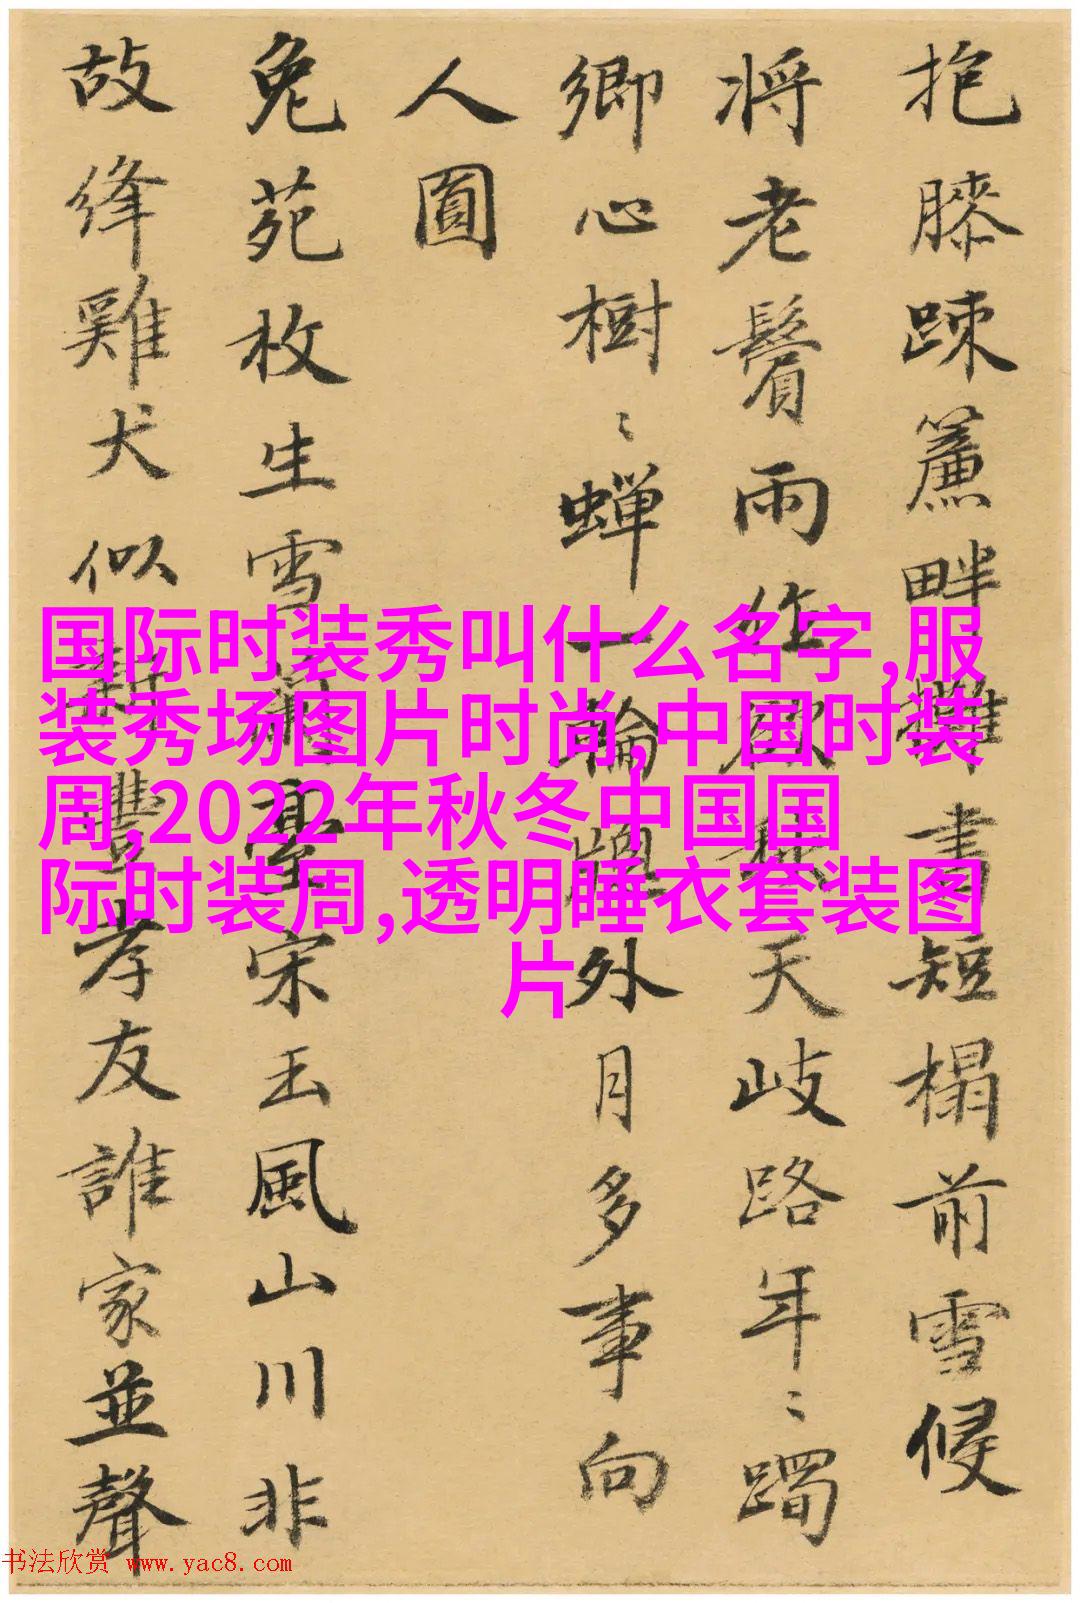 抱膝踈簾畔攤書短榻前雪侵
将老鬢雨作欲秋天岐路年〻躅
鄉心樹〻蟬一輪牕外月多事向
人圓
兔苑枚生雪蘭臺宋玉風山川非
故絳雞犬似新豐孝友誰家並聲
国际时装秀叫什么名字,服
装秀场图片时尚,中国时装
周,2022年秋冬中国国
际时装周,透明睡衣套装图
片
书法欣赏 www.yac8.com